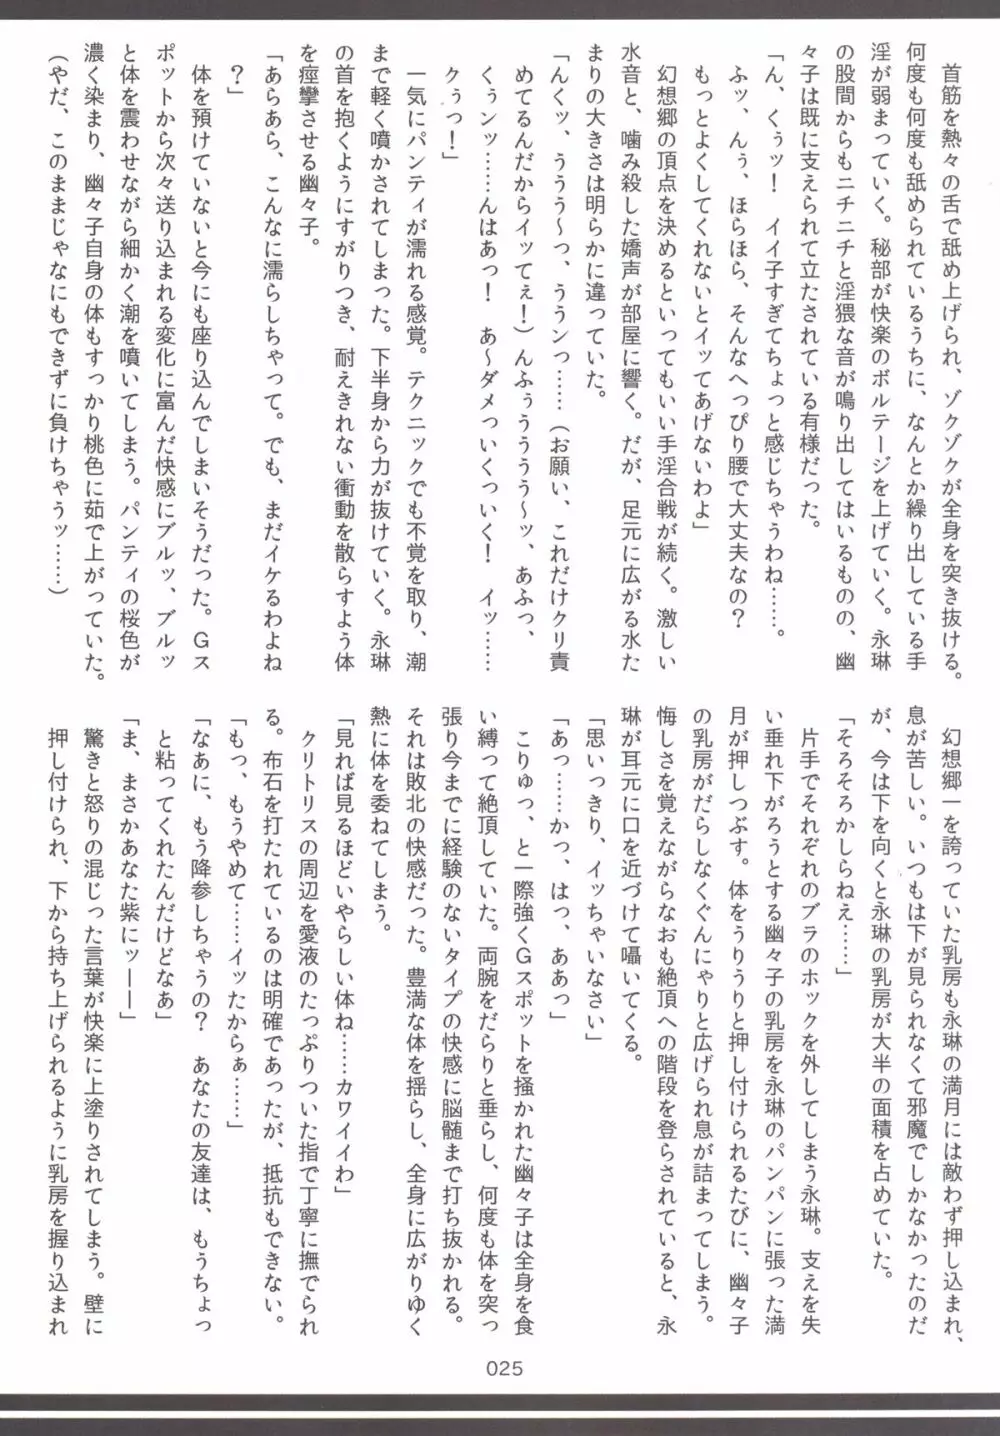 首筋を熱々の舌で舐め上げられ、ゾクゾクが全身を突き抜ける。
何度も何度も舐められているうちに、なんとか繰り出している手
淫が弱まっていく。秘部が快楽のボルテージを上げていく。永琳
の股間からもニチニチと淫猥な音が鳴り出してはいるものの、幽
々子は既に支えられて立たされている有様だった。
「ん、くぅッ！　イイ子すぎてちょっと感じちゃうわね……。
ふッ、んぅ、ほらほら、そんなへっぴり腰で大丈夫なの？
もっとよくしてくれないとイッてあげないわよ」
幻想郷の頂点を決めるといってもいい手淫合戦が続く。激しい
水音と、噛み殺した嬌声が部屋に響く。だが、足元に広がる水た
まりの大きさは明らかに違っていた。
「んくッ、ううう～っ、ううンっ……（お願い、これだけクリ責
めてるんだからイッてぇ！）んふぅうううう～ッ、あふっ、
くぅンッ……んはあっ！　あ～ダメっいくっいく！　イッ……
クぅっ！」
一気にパンティが濡れる感覚。テクニックでも不覚を取り、潮
まで軽く噴かされてしまった。下半身から力が抜けていく。永琳
の首を抱くようにすがりつき、耐えきれない衝動を散らすよう体
を痙攣させる幽々子。
「あらあら、こんなに濡らしちゃって。でも、まだイケるわよね
？」
体を預けていないと今にも座り込んでしまいそうだった。Ｇス
ポットから次々送り込まれる変化に富んだ快感にブルッ、ブルッ
と体を震わせながら細かく潮を噴いてしまう。パンティの桜色が
濃く染まり、幽々子自身の体もすっかり桃色に茹で上がっていた。
（やだ、このままじゃなにもできずに負けちゃうッ……）
幻想郷一を誇っていた乳房も永琳の満月には敵わず押し込まれ、
息が苦しい。いつもは下が見られなくて邪魔でしかなかったのだ
が、今は下を向くと永琳の乳房が大半の面積を占めていた。
「そろそろかしらねえ……」
片手でそれぞれのブラのホックを外してしまう永琳。支えを失
い垂れ下がろうとする幽々子の乳房を永琳のパンパンに張った満
月が押しつぶす。体をうりうりと押し付けられるたびに、幽々子
の乳房がだらしなくぐんにゃりと広げられ息が詰まってしまう。
悔しさを覚えながらなおも絶頂への階段を登らされていると、永
琳が耳元に口を近づけて囁いてくる。
「思いっきり、イッちゃいなさい」
「あっ……かっ、はっ、ああっ」
こりゅっ、と一際強くＧスポットを掻かれた幽々子は全身を食
い縛って絶頂していた。両腕をだらりと垂らし、何度も体を突っ
張り今までに経験のないタイプの快感に脳髄まで打ち抜かれる。
それは敗北の快感だった。豊満な体を揺らし、全身に広がりゆく
熱に体を委ねてしまう。
「見れば見るほどいやらしい体ね……カワイイわ」
クリトリスの周辺を愛液のたっぷりついた指で丁寧に撫でられ
る。布石を打たれているのは明確であったが、抵抗もできない。
「もっ、もうやめて……イッたからぁ……」
「なあに、もう降参しちゃうの？　あなたの友達は、もうちょっ
と粘ってくれたんだけどなあ」
「ま、まさかあなた紫にッ――」
驚きと怒りの混じった言葉が快楽に上塗りされてしまう。壁に
押し付けられ、下から持ち上げられるように乳房を握り込まれ
025